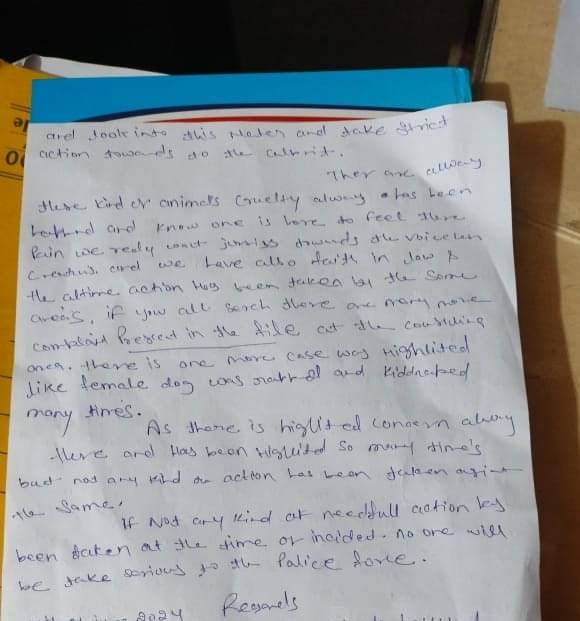 and look into this Mater and take strict
action towards to the culprit.
Ther are allway
these kind of animals cruelty alway has been
and know one is here to feel there
Pain we realy want towards the voiceless
and we have also faith in law &
the action Has been taken by the same
areas, if you all serch there are many more
complaint Present in the file at the
area. there is one more case was Highlited
like female dog was and kiddnaped
many time's.
As there is higlited concern alway
there and Has been Higlited so many time's
but not any kind on action has been taken
the same.
If Not any kind of needfull action
been taken at the time or incided. no one will
be take serious to the Police force.
2024 Regards